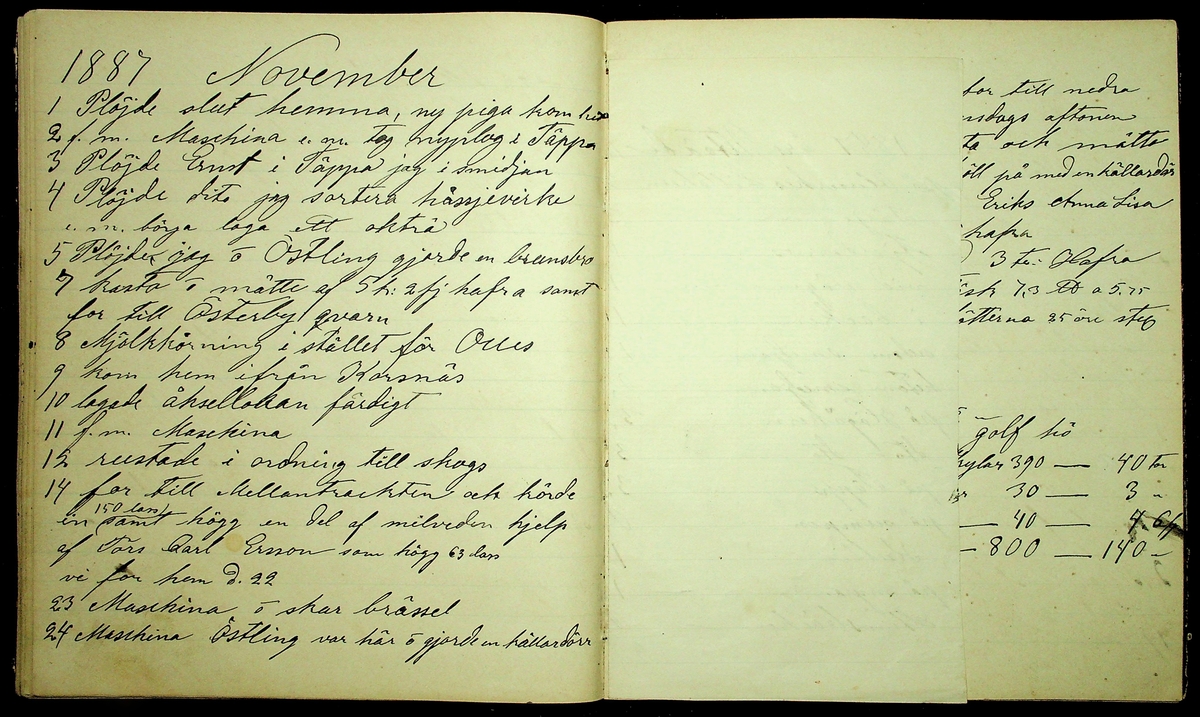 1887 November
1 Plöjde slut hemma, ny piga kom hit
2 f. m. Maschina e. m. tog nyplog i Täppa
3 Plöjde Ernst i Täppa jag i smidjan
4 Plöjde dito jag sortera hässjevirke
e. m. börja laga ett okträ
5 Plöjde, jag o Östling gjorde en brunsbro
7 kasta o mätte af 5 t: 2 fj hafra samt
for till Österby qvarn
8 Mjölkkörning i stället för Oües
9 kom hem ifrån Korsnäs
10 lagade åksellokan färdigt
11 f. m. Maschina
12 rustade i ordning till skogs
14 for till Mellantrackten och körde
in 150 lass samt högg en del af milveden hjelp
af Tors Carl Ersson som högg 63 lass
vi for hem d. 22
23 Maschina o skar brässel
24 Maschina Östling var här o gjorde en källardörr
for till nedra
nsdags aftonen
ta och mätte
öll på med en källardör
Eriks Anna Lisa
hafra
3 t:r Hafra
isk 7,3 a 5.75
ätterna 35 öre
golf hö
kylar 390 — 40 tor
30 — 3 "
— 40 — 4 6fj
— 800 — 140 "